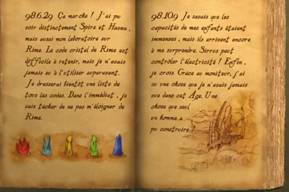 98.6.29 Ça marche ! J'ai pu
voir distinctement Spire et Haven,
mais aussi mon laboratoire sur
Rime. Le code cristal de Rime est
difficile à retenir, mais je n'avais
jamais eu à l'utiliser auparavant.
Je dresserai bientôt une liste de
tous les codes. Dans l'immédiat, je
vais tâcher de ne pas m'éloigner de
Rime.
98.10.9 Je savais que les
capacités de mes enfants étaient
immenses, mais ils arrivent encore
à me surprendre. Sirrus peut
contrôler l'électricité ! Enfin,
je crois. Grâce au monitoir, j'ai
vu une chose que je n'avais jamais
vue dans cet Âge. Une
chose que seul
un homme a
pu construire.